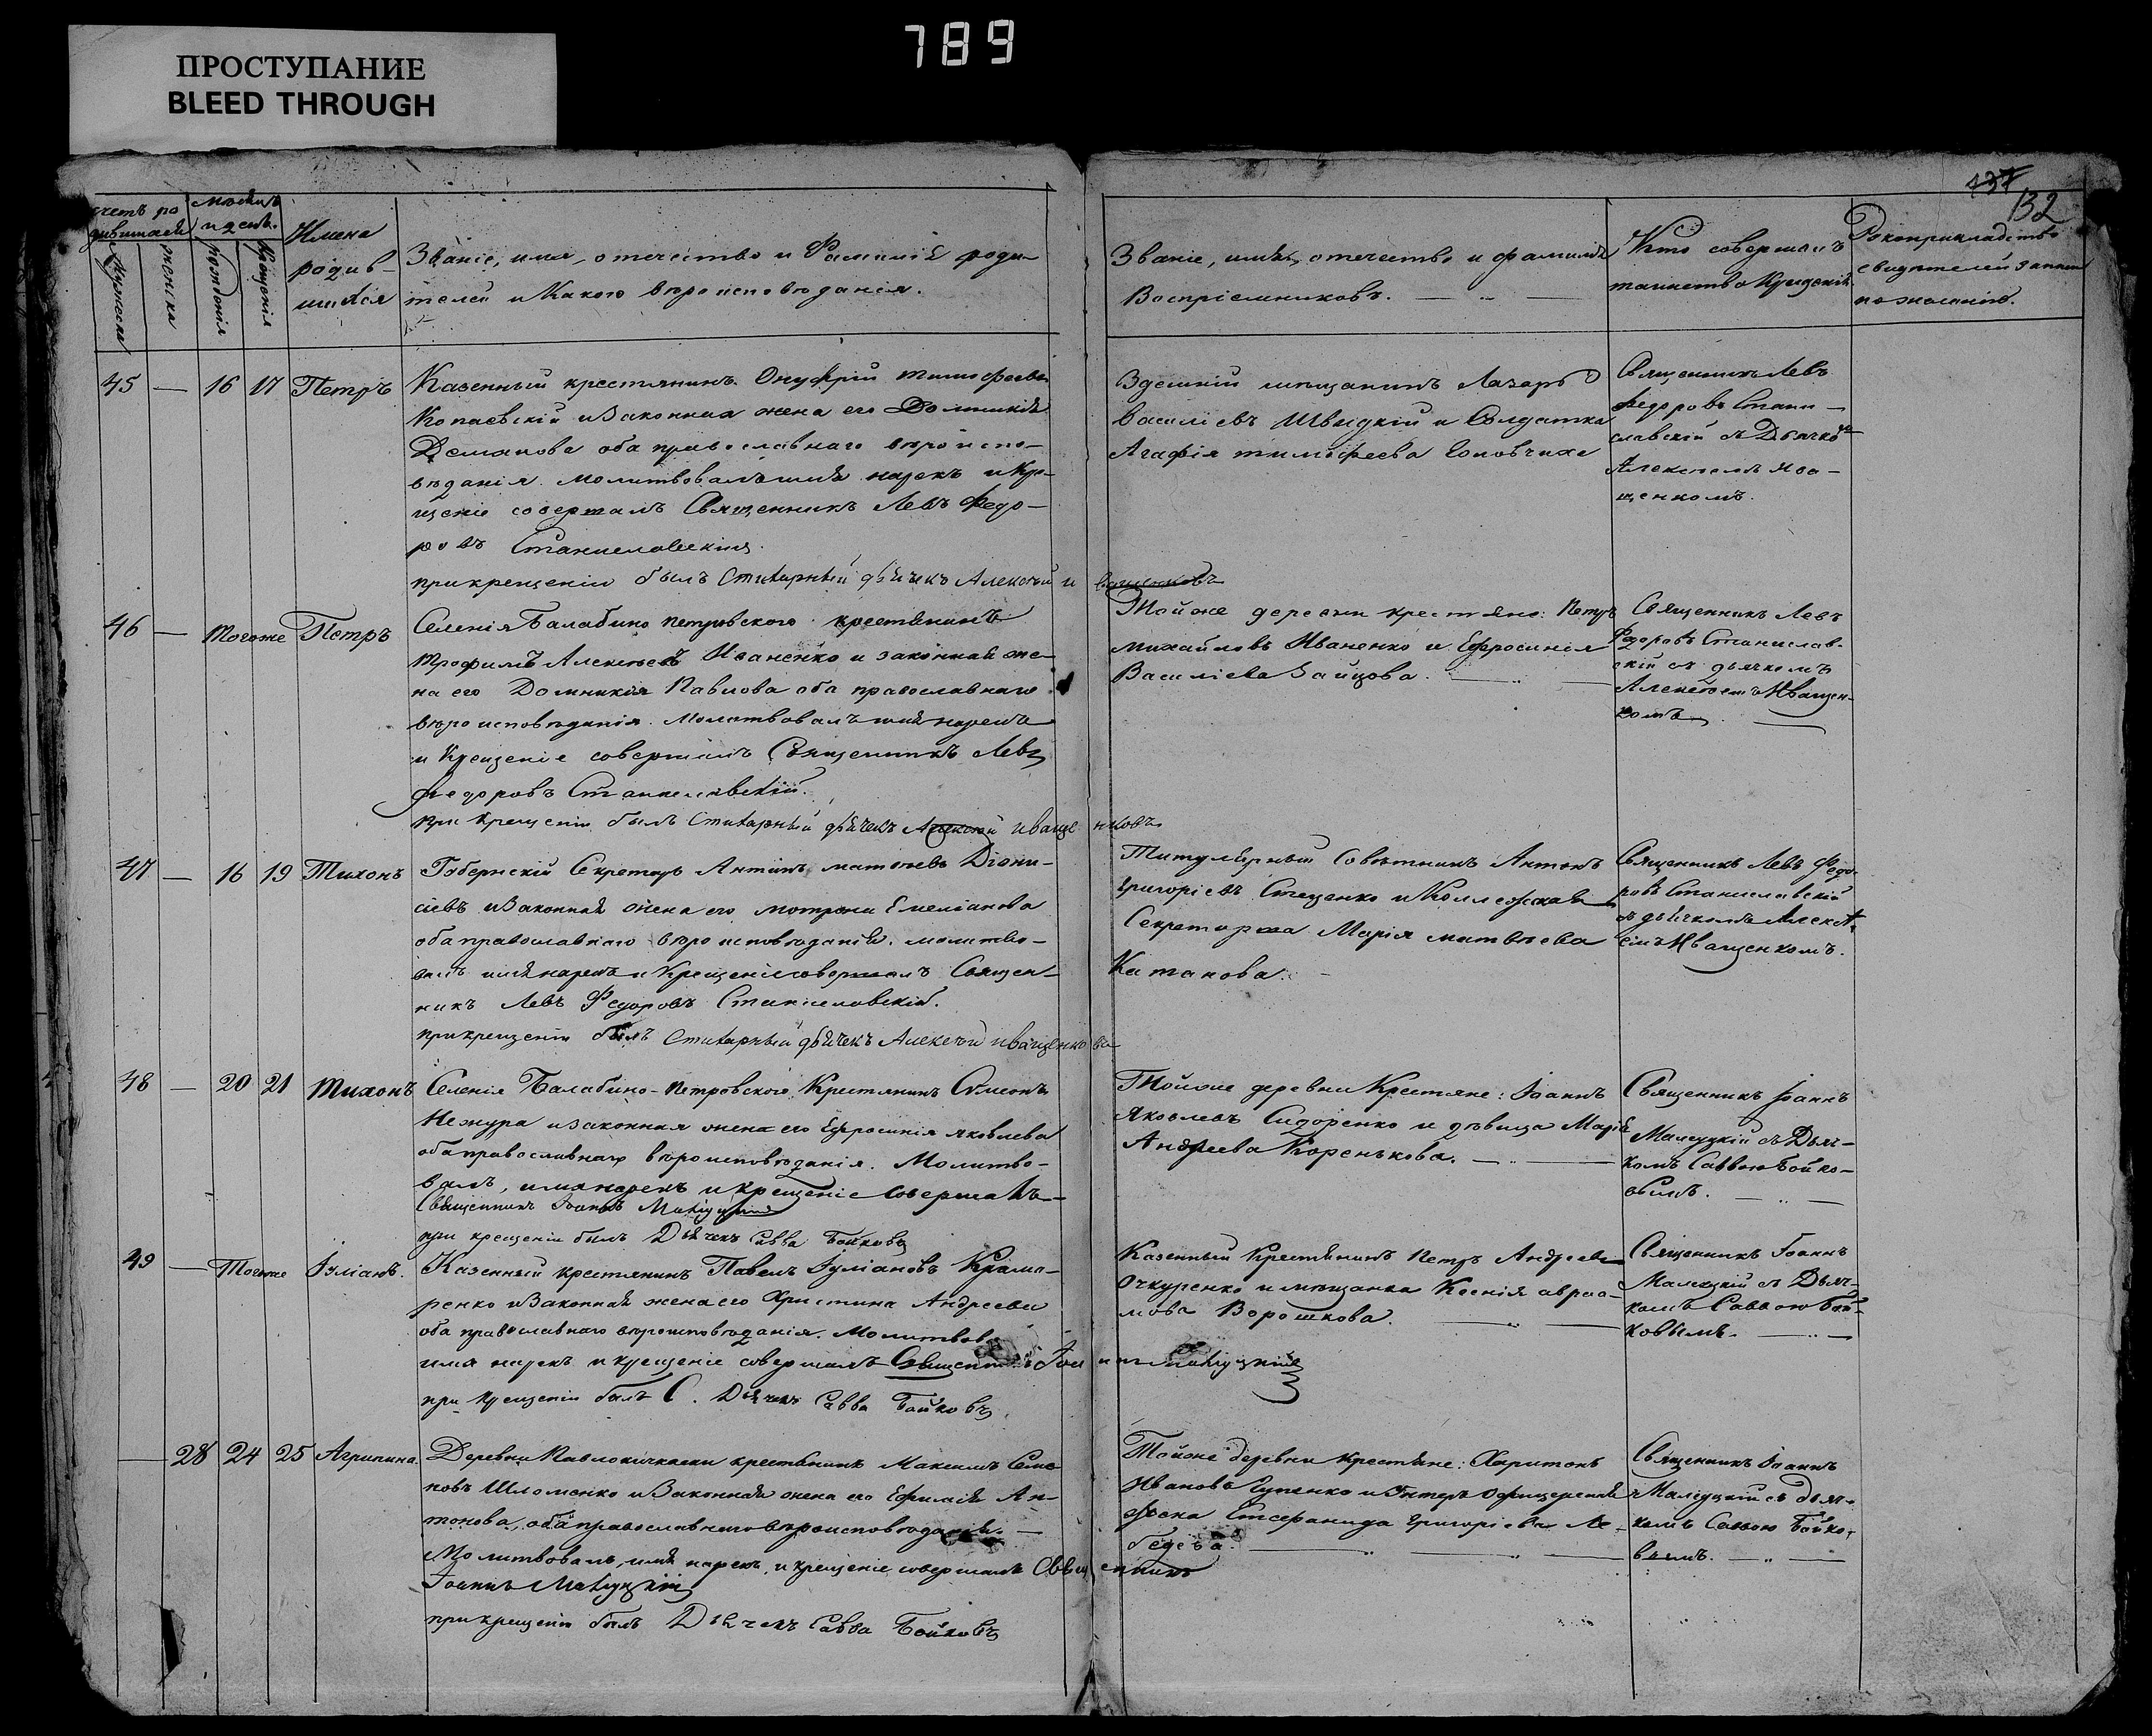 ПРОСТУПАНИЕ
BLEED THROUGH
789
137
132
счетъ ро
дившихся
мѣсяцъ
и день.
Мужеска
женска
рожденія
Крещенія
Имена
родив-
шихся
Званіе, имя, отечество и Фамилія роди-
телей и Какого вѣроисповѣданія.
Званіе, имя, отечество и фамилія
Воспріемниковъ.
Кто совершалъ
таинство Крещенія
Рукоприкладство
свидѣтелей записи
по желанію.
45 — 16 17 Петръ
Казенный крестянинъ Онуфрій тимофеевъ
Копаевскій и Законная жена его Домникія
Демянова оба православнаго вѣроиспо-
вѣданія. молитвовалъ имя нарекъ и Кре-
щеніе совершалъ Священникъ Левъ Федо-
ровъ Станиславскій.
при крещеніи былъ Стихарный дьячекъ Алексѣй иващенковъ
Здешній мещанинъ Лазарь
Василіевъ Швидкій и Солдатка
Агафія тимофеева
Священникъ Левъ
Федоровъ Стани-
славскій съ Дьячко
Алексѣемъ Ива-
щенкомъ.
46 — Тогоже Петръ
Селенія Балабино петровского крестянинъ
трофимъ Алексѣевъ Иваненко и законная же-
на его Домникія Павлова оба православнаго
вѣроисповѣданія. Молитвовалъ имя нарекъ
и Крещеніе совершалъ Священникъ Левъ
Федоровъ Станиславскій.
при крещеніи былъ Стихарный дьячекъ Алексѣй иващенковъ
Тойже деревни крестяне: Петръ
михайловъ Иваненко и Ефросинія
Василіева Зайцова.
Священникъ Левъ
Федоровъ Станислав-
скій съ дьячкомъ
Алексѣемъ Иващен-
комъ.
47 — 16 19 Тихонъ
Губернскій Секретарь Антипъ матвѣевъ Діони-
сіевъ и Законная жена его мотрона Емеліанова
оба православнаго вѣроисповѣданія. молитво-
валъ имя нарекъ и Крещеніе совершалъ Священ-
никъ Левъ Федоровъ Станиславскій.
при крещеніи былъ Стихарный дьячекъ Алексѣй иващенковъ
Титулярный Совѣтникъ Антонъ
григоріевъ Стеценко и Коллежская
Секретарша Марія матвѣева
Катанова.
Священникъ Левъ Федо-
ровъ Станиславскій
съ дьячкомъ Алексѣ-
емъ Иващенкомъ.
48 — 20 21 Тихонъ
Селенія Балабино-Петровского Крестянинъ Симонъ
Межура и законная жена его Ефросинія яковлева
оба православнаго вѣроисповѣданія. Молитво-
валъ, имя нарекъ и крещеніе совершалъ
Священникъ Іоаннъ Малицкій
при крещеніи былъ Дьячекъ Савва Бойковъ
Тойже деревни Крестяне: Іоаннъ
Яковлевъ Сидоренко и дѣвица Марія
Андреева Коренькова.
Священникъ Іоаннъ
Малицкій съ Дьяч-
комъ Саввою Бойко-
вымъ.
49 — Тогоже Іуліанъ.
Казенный крестянинъ Павелъ Іуліановъ Крама-
ренко и Законная жена его Христина Андреева
оба православнаго вѣроисповѣданія. Молитвова
имя нарекъ и крещеніе совершалъ Священникъ Іоаннъ Малицкій
при крещеніи былъ С. Дьячекъ Савва Бойковъ
Казенный Крестянинъ Петръ Андреевъ
Очкуренко и мещанка Ксенія авраа-
мова Ворошкова.
Священникъ Іоаннъ
Малицкій съ Дьяч-
комъ Саввою Бой-
ковымъ.
— 28 24 25 Агрипина
Деревни Павлокичкаски крестянинъ Максимъ Семе-
новъ Шломенко и Законная жена его Ефимія Ан-
тонова, оба православнаго вѣроисповѣданія.
Молитвовалъ, имя нарекъ, и крещеніе совершалъ Священникъ
Іоаннъ Малицкій
при крещеніи былъ Дьячекъ Савва Бойковъ
Тойже деревни крестяне: Харитонъ
Ивановъ и Унтеръ Офицерская
Стефанида григоріева Ле-
бедева.
Священникъ Іоаннъ
Малицкій съ дьяч-
комъ Саввою Бойко-
вымъ.